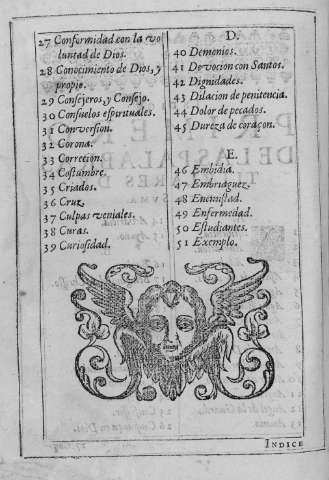 27 Conformidad con la vo
luntad de Dios.
28 Conocimiento de Dios, y
propio.
29 Consejeros, y Consejo.
30 Consuelos espirituales.
31 Conversion.
32 Corona.
33 Correcion.
34 Costumbre.
35 Criados.
36 Cruz.
37 Culpas veniales.
38 Curas.
39 Curiosidad.
D.
40 Demonios.
41 Devocion con Santos.
42 Dignidades.
43 Dilacion de penitencia.
44 Dolor de pecados.
45 Dureza de coraçon.
E.
46 Embidia.
47 Embriaguez.
48 Enemistad.
49 Enfermedad.
50 Estudiantes.
51 Exemplo.
INDICE